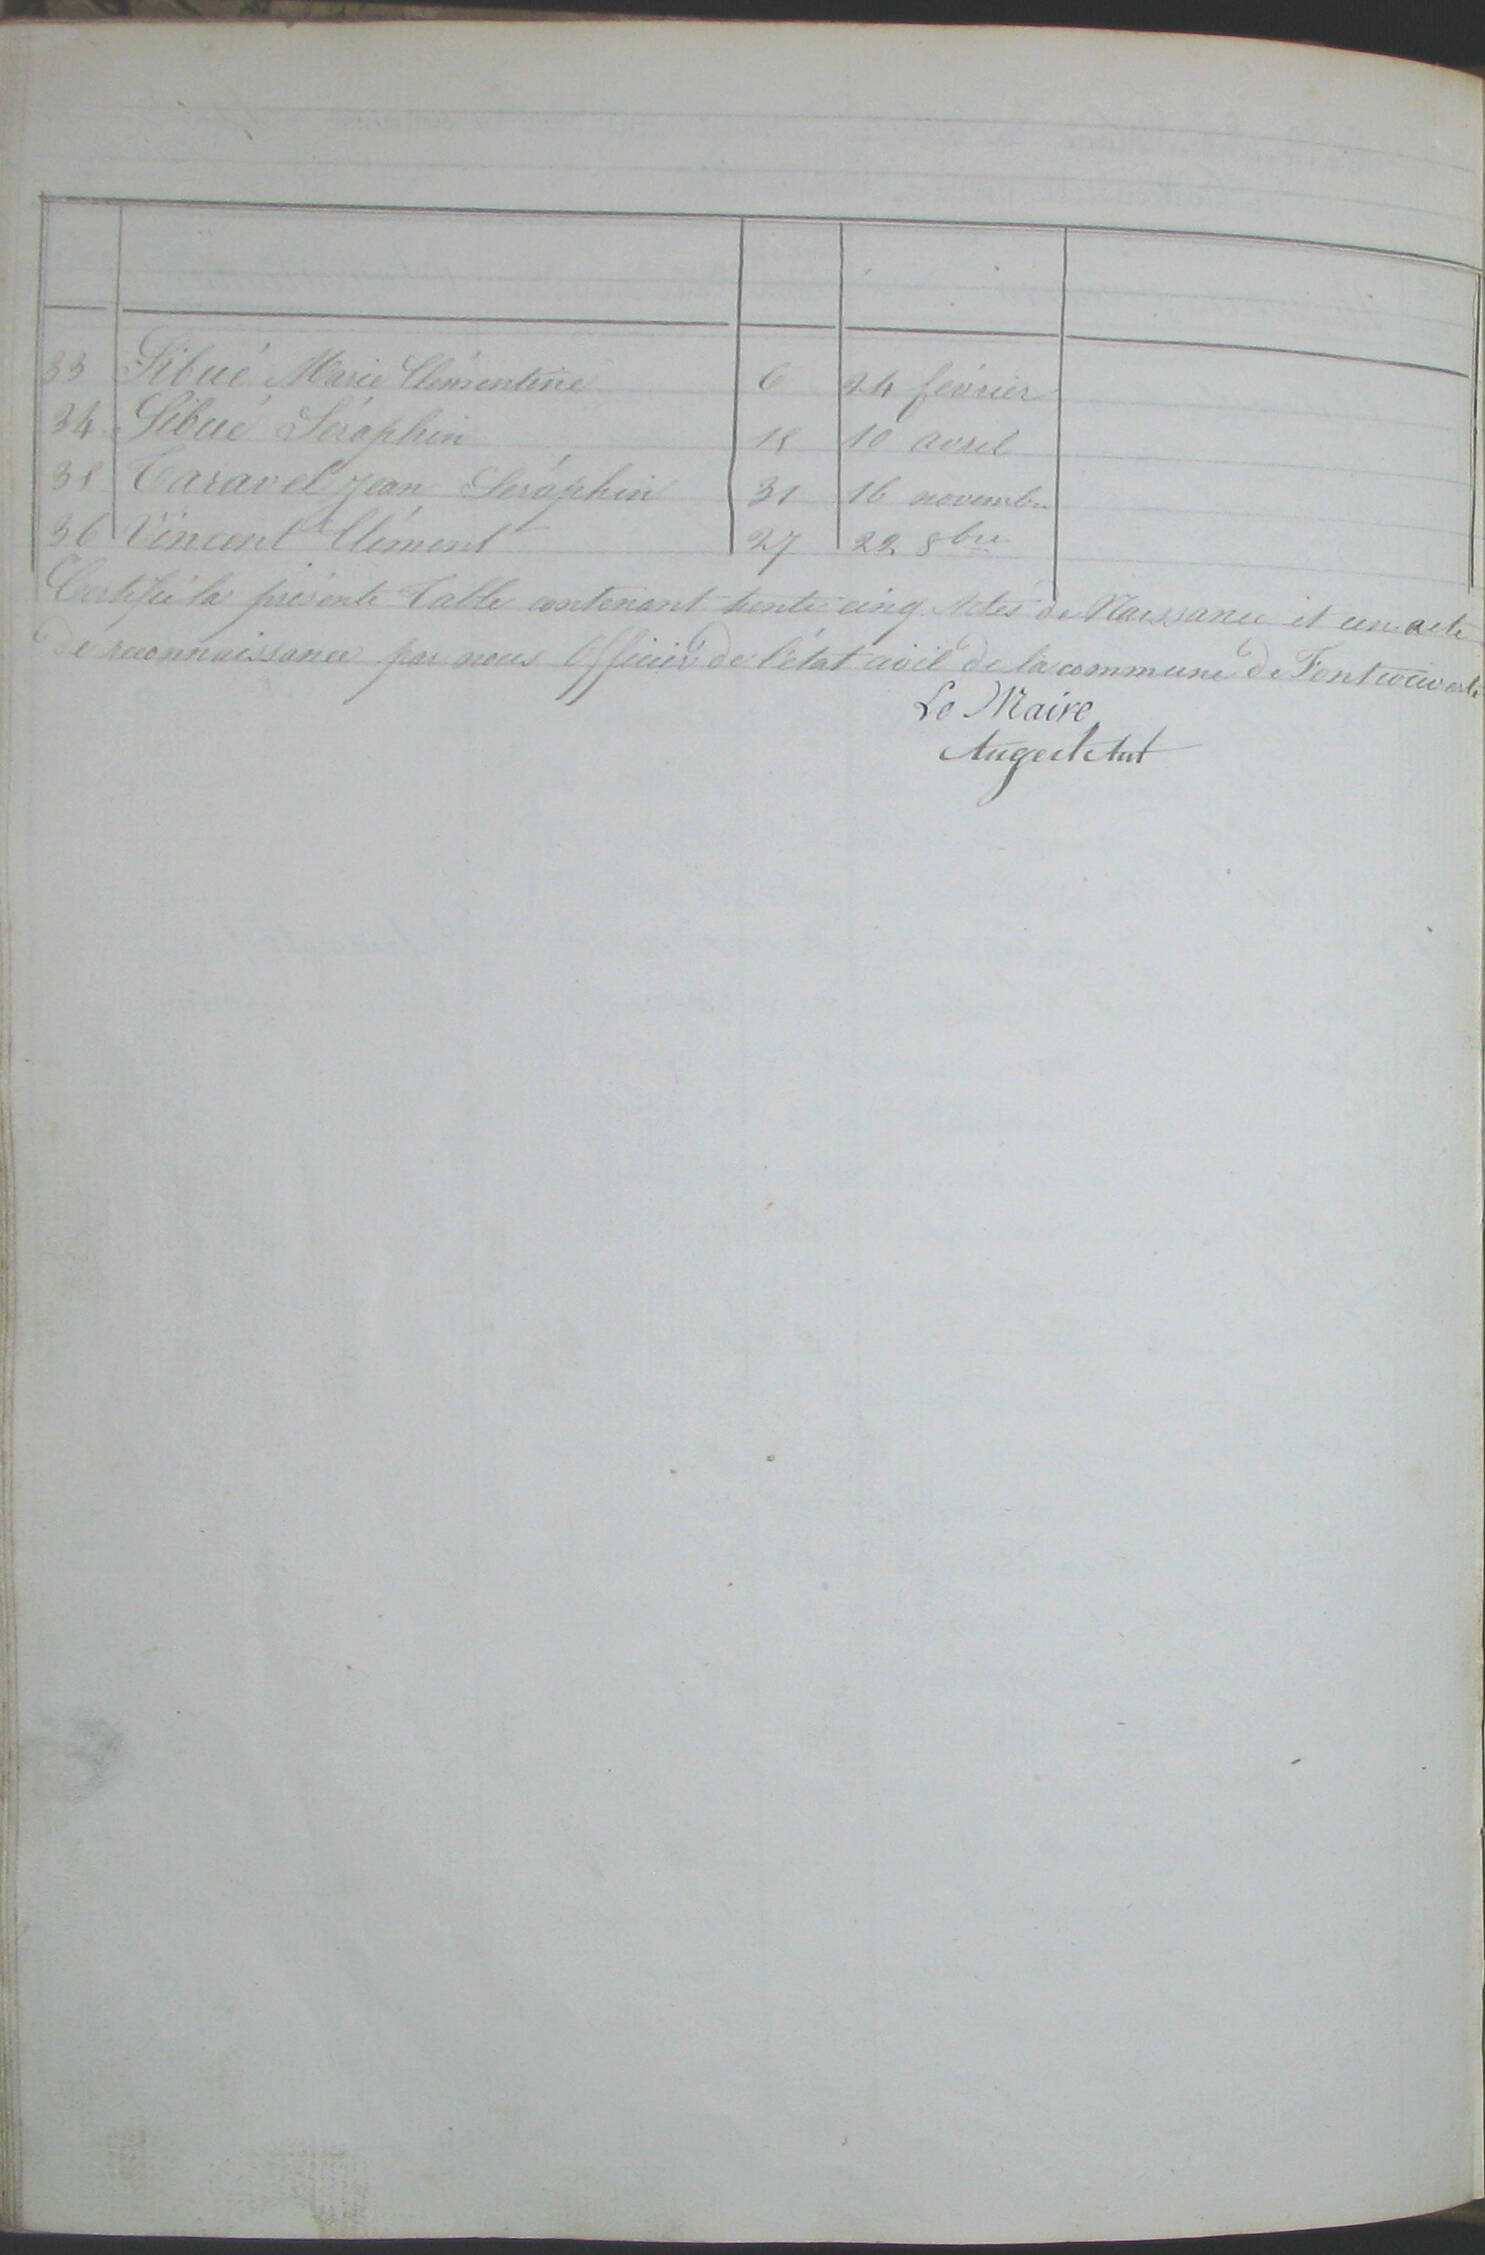 33 Sibué Marie Clémentine 6 24 février
34 Sibué Séraphin 15 10 avril
35 Taravel Jean Séraphin 31 16 novembre
36 Vincent Clément 27 22 8bre
Certifié la présente Table contenant trente cinq Actes de Naissance et un acte
de reconnaissance par nous Officier de l'état civil de la commune de Fontcouverte
Le Maire